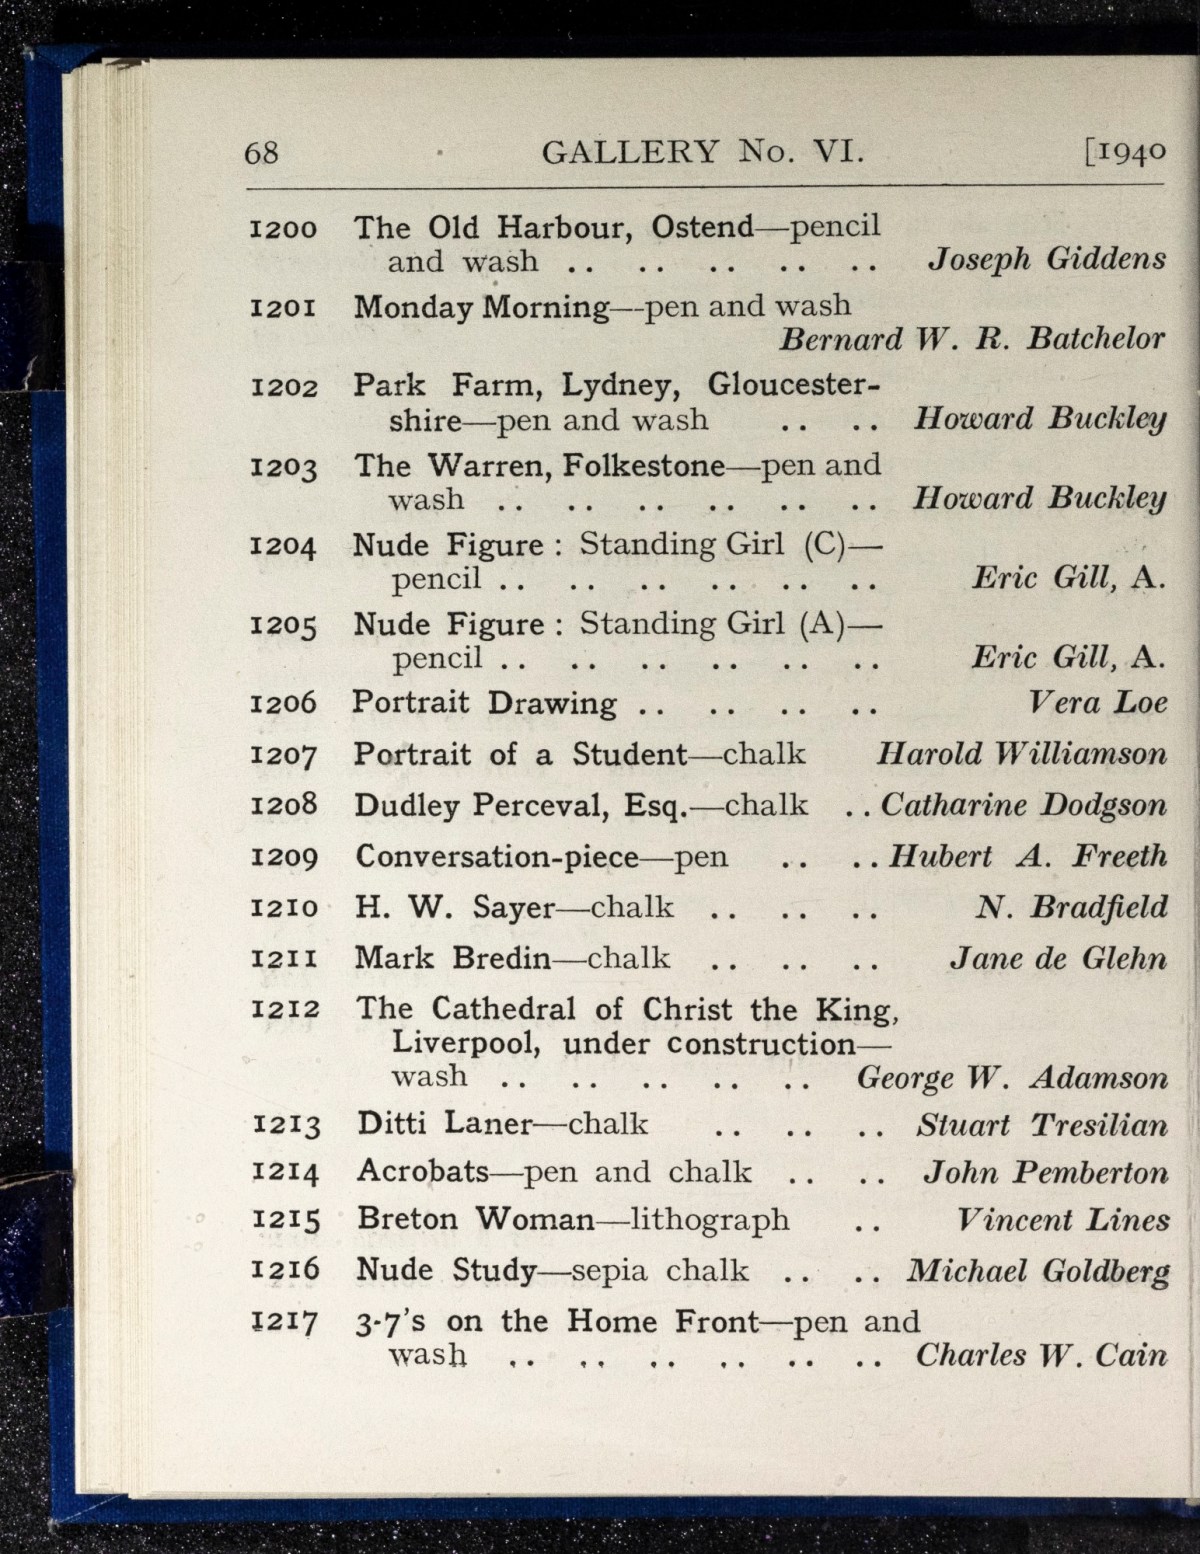 68 GALLERY No. VI. [1940
1200 The Old Harbour, Ostend—pencil
and wash .. .. .. .. .. Joseph Giddens
1201 Monday Morning—pen and wash
Bernard W. R. Batchelor
1202 Park Farm, Lydney, Gloucester-
shire—pen and wash .. .. Howard Buckley
1203 The Warren, Folkestone—pen and
wash .. .. .. .. .. .. Howard Buckley
1204 Nude Figure : Standing Girl (C)—
pencil .. .. .. .. .. .. Eric Gill, A.
1205 Nude Figure : Standing Girl (A)—
pencil .. .. .. .. .. .. Eric Gill, A.
1206 Portrait Drawing .. .. .. .. Vera Loe
1207 Portrait of a Student—chalk Harold Williamson
1208 Dudley Perceval, Esq.—chalk .. Catharine Dodgson
1209 Conversation-piece—pen .. .. Hubert A. Freeth
1210 H. W. Sayer—chalk .. .. .. N. Bradfield
1211 Mark Bredin—chalk .. .. .. Jane de Glehn
1212 The Cathedral of Christ the King,
Liverpool, under construction—
wash .. .. .. .. .. George W. Adamson
1213 Ditti Laner—chalk .. .. .. Stuart Tresilian
1214 Acrobats—pen and chalk .. .. John Pemberton
1215 Breton Woman—lithograph .. Vincent Lines
1216 Nude Study—sepia chalk .. .. Michael Goldberg
1217 3·7's on the Home Front—pen and
wash .. .. .. .. .. .. Charles W. Cain